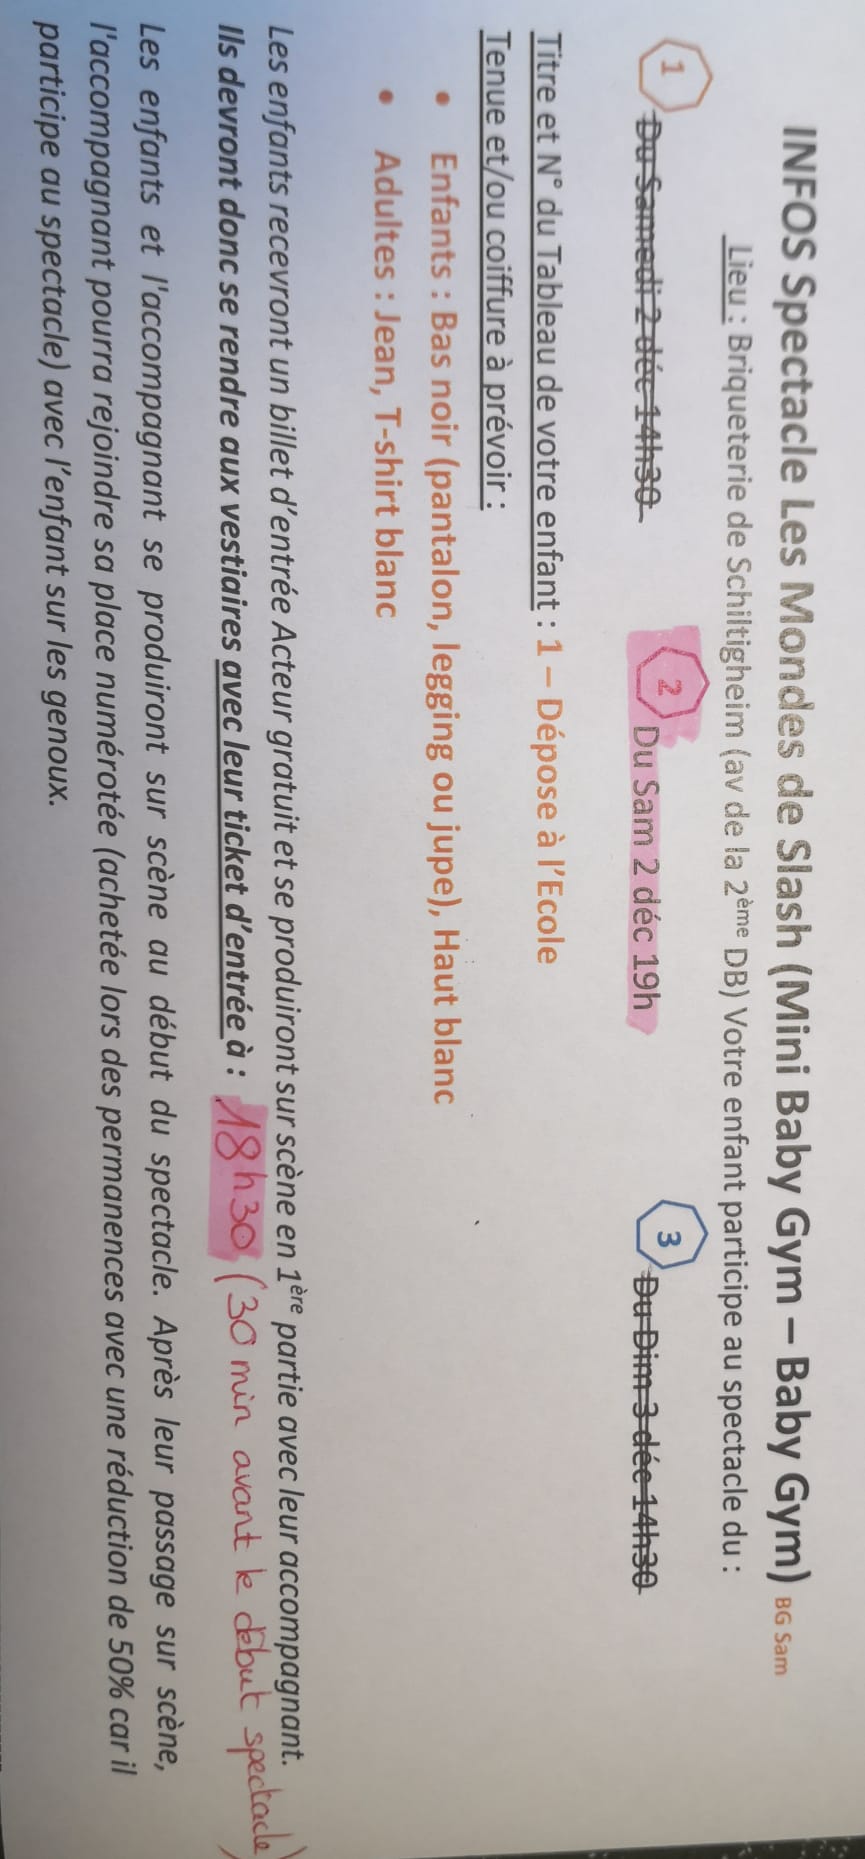 INFOS Spectacle Les Mondes de Slash (Mini Baby Gym – Baby Gym) BG Sam
Lieu : Briqueterie de Schiltigheim (av de la 2ème DB) Votre enfant participe au spectacle du :
1 Du Samedi 2 déc 14h30 2 Du Sam 2 déc 19h 3 Du Dim 3 déc 14h30
Titre et N° du Tableau de votre enfant : 1 – Dépose à l'Ecole
Tenue et/ou coiffure à prévoir :
• Enfants : Bas noir (pantalon, legging ou jupe), Haut blanc
• Adultes : Jean, T-shirt blanc
Les enfants recevront un billet d'entrée Acteur gratuit et se produiront sur scène en 1ère partie avec leur accompagnant.
Ils devront donc se rendre aux vestiaires avec leur ticket d'entrée à : 18h30 (30 min avant le début spectacle)
Les enfants et l'accompagnant se produiront sur scène au début du spectacle. Après leur passage sur scène,
l'accompagnant pourra rejoindre sa place numérotée (achetée lors des permanences avec une réduction de 50% car il
participe au spectacle) avec l'enfant sur les genoux.